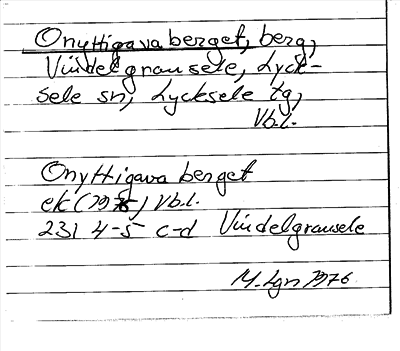 Onyttigavaberget, berg,
Vindelgransele, Lyck-
sele sn, Lycksele tg,
Vb.l.
Onyttigavaberget
ek (1975) Vb.l.
23I 4-5 c-d Vindelgransele
M. Lgn 1976